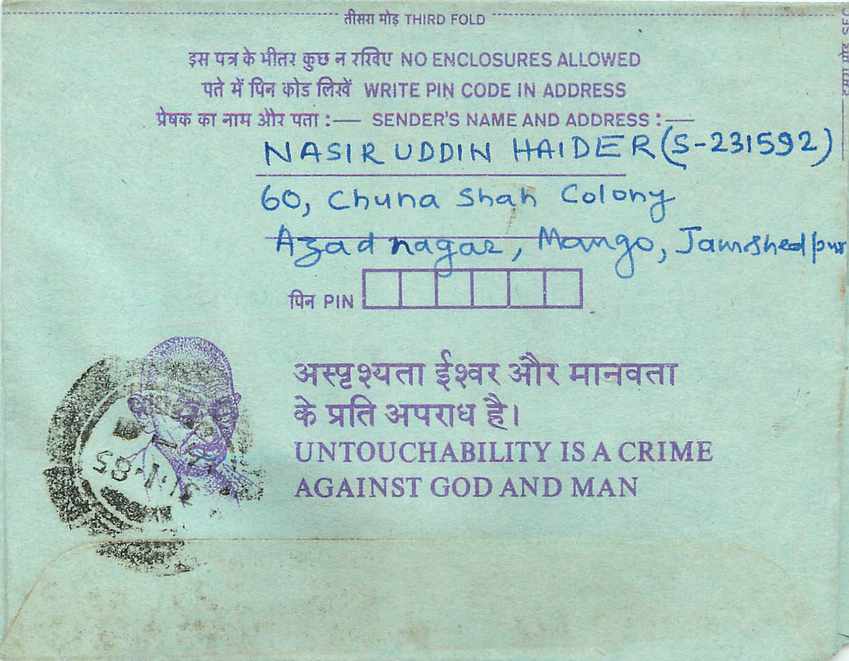 तीसरा मोड़ THIRD FOLD
इस पत्र के भीतर कुछ न रखिए NO ENCLOSURES ALLOWED
पते में पिन कोड लिखें WRITE PIN CODE IN ADDRESS
प्रेषक का नाम और पता :— SENDER'S NAME AND ADDRESS :—
NASIR UDDIN HAIDER (S-231592)
60, Chuna Shah Colony
Azad nagar, Mango, Jamshedpur
पिन PIN
अस्पृश्यता ईश्वर और मानवता
के प्रति अपराध है।
UNTOUCHABILITY IS A CRIME
AGAINST GOD AND MAN